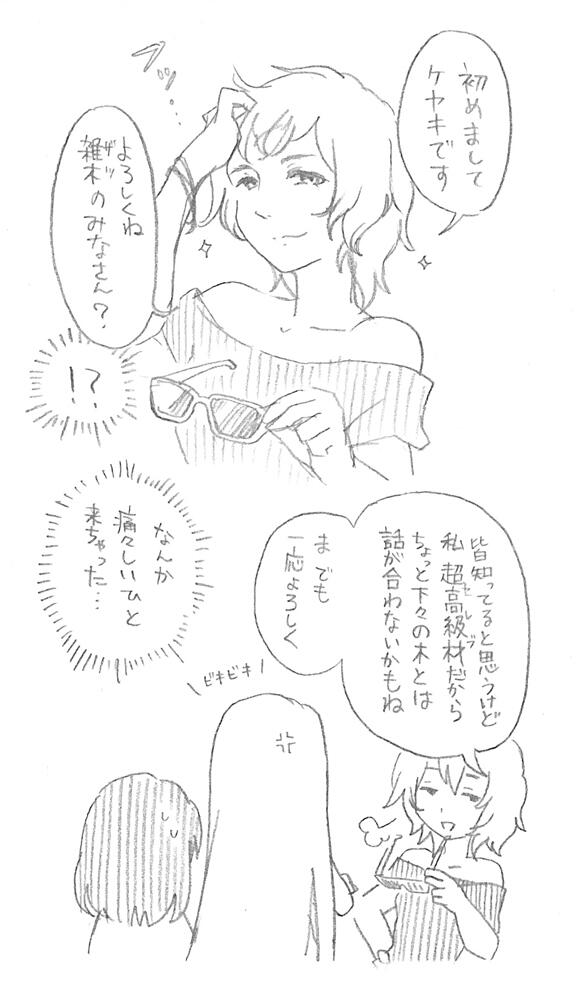 初めまして
ケヤキです
ブッ…
よろしくね
雑木のみなさん？
ザツ
!?
皆知ってると思うけど
私 超高級材だから
セレブ
ちょっと下々の木とは
話が合わないかもね
までも
一応よろしく
なんか
痛々しいひと
来ちゃった…
ビキビキ